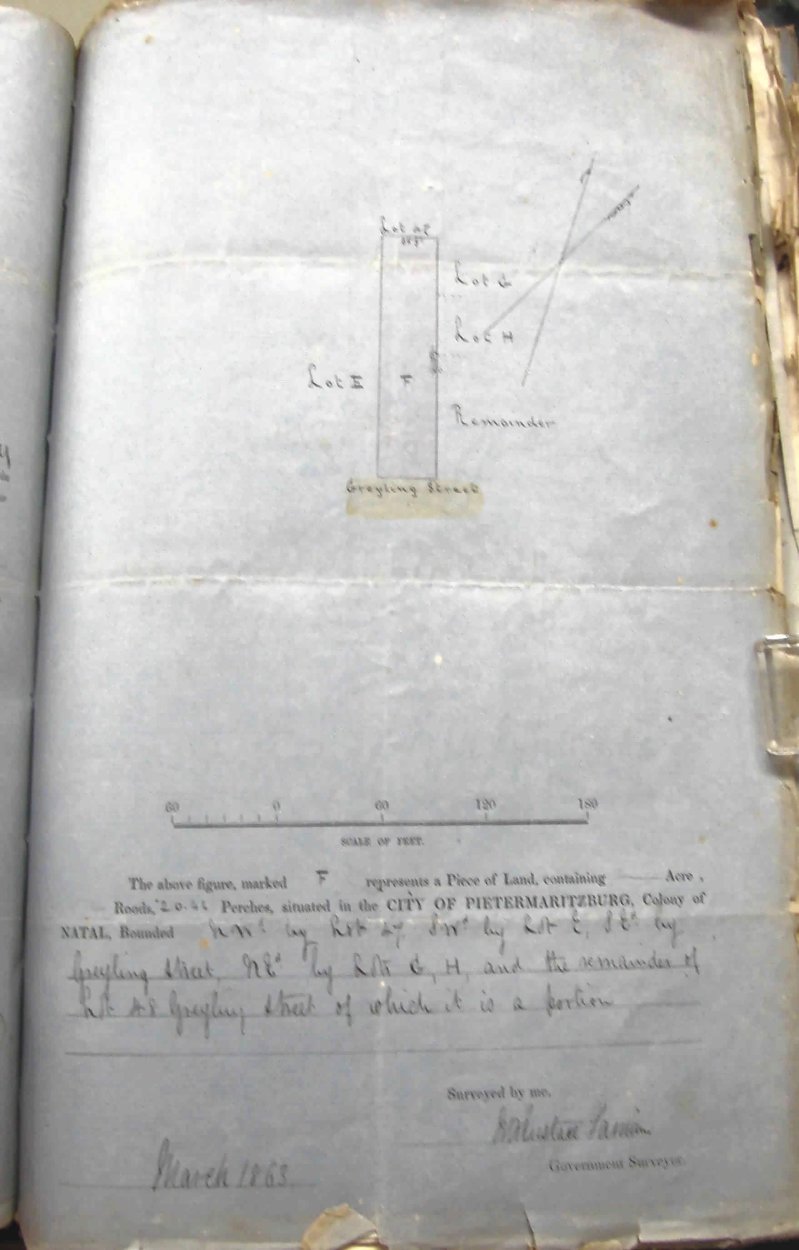 Lot 47
Lot G
Lot H
Lot E
F
Remainder
Greyling Street
60 0 60 120 180
SCALE OF FEET.
The above figure, marked F represents a Piece of Land, containing Acre,
Roods, Perches, situated in the CITY OF PIETERMARITZBURG, Colony of
NATAL, Bounded N Wd by Lot 47 S Wd by Lot E, S Ed by
Greyling Street, N Ed by Lots G, H, and the remainder of
Lot 48 Greyling Street of which it is a portion
Surveyed by me,
Government Surveyor.
March 1863